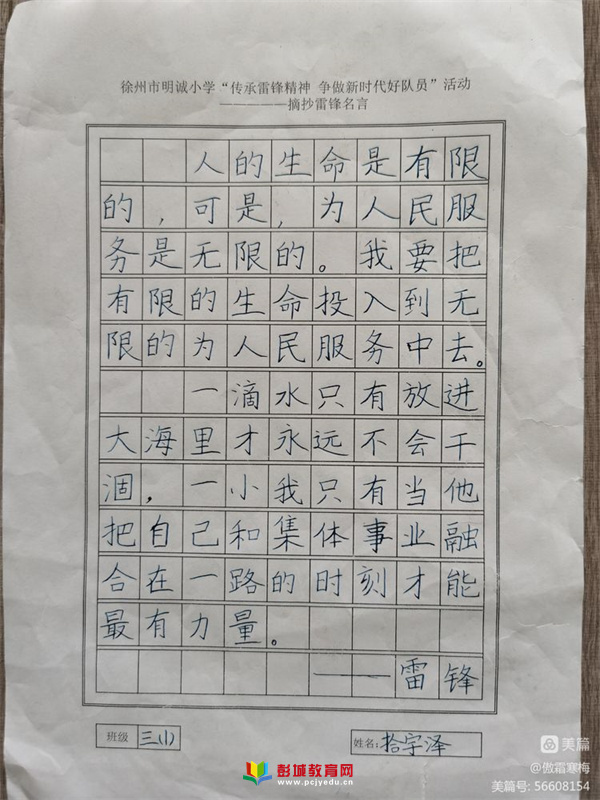 徐州市明诚小学“传承雷锋精神 争做新时代好队员”活动
—————摘抄雷锋名言
人的生命是有限
的，可是，为人民服
务是无限的。我要把
有限的生命投入到无
限的为人民服务中去。
一滴水只有放进
大海里才永远不会干
涸，一小我只有当他
把自己和集体事业融
合在一路的时刻才能
最有力量。
——雷锋
班级 三(1) 姓名：拾宇泽
彭城教育网
www.pcjyedu.com
美篇
@傲霜寒梅
美篇号: 56608154